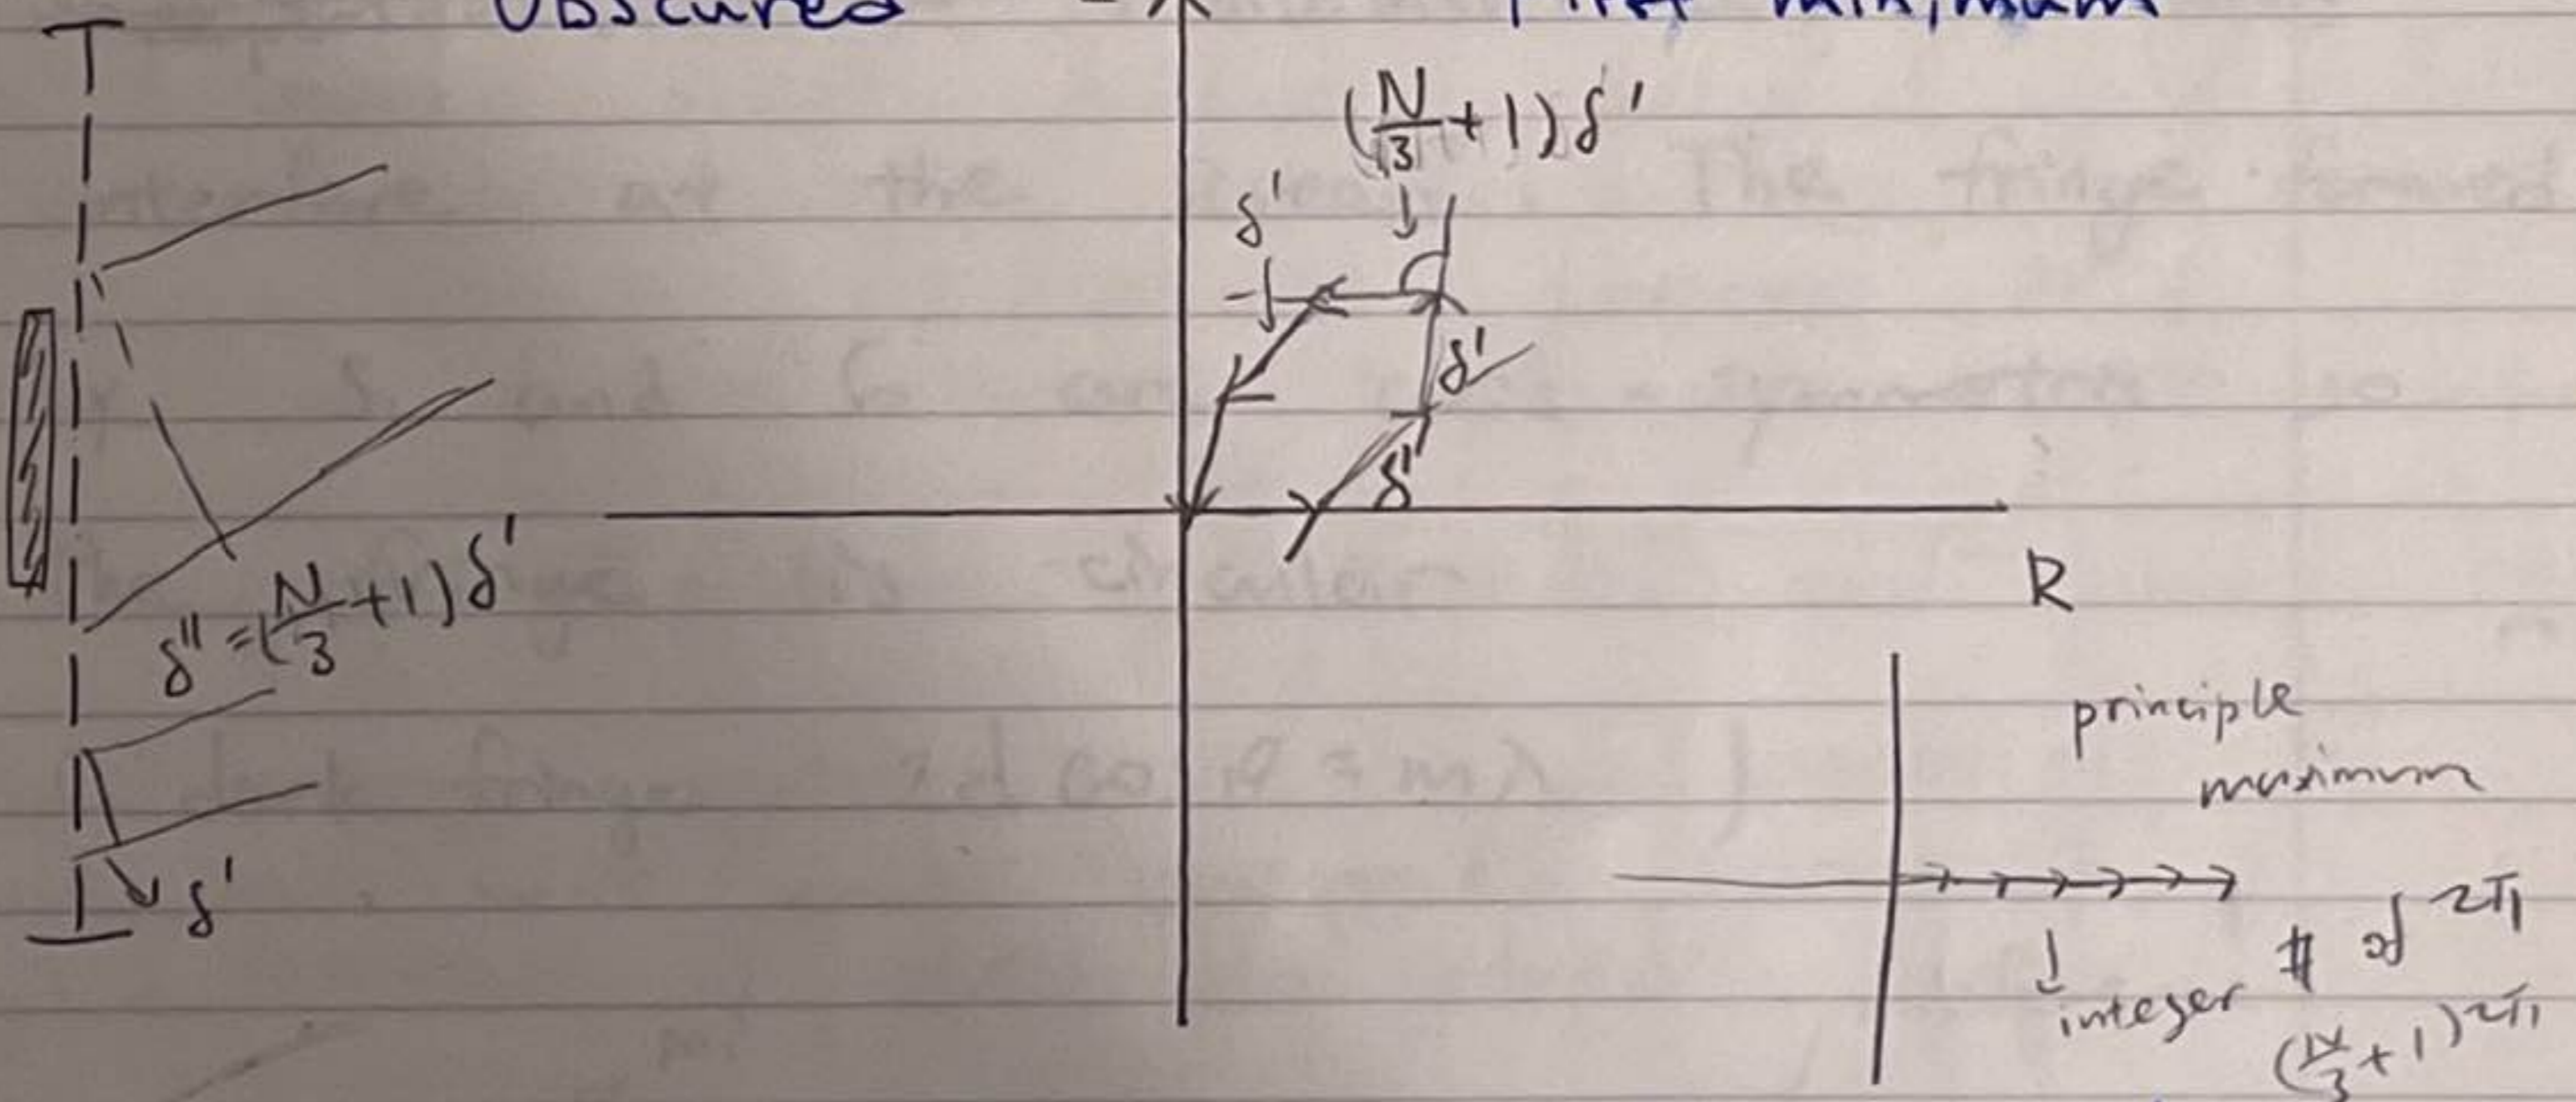 Obscured
First minimum
(N/3 + 1) δ'
δ'
δ'
δ'
δ'' = (N/3 + 1) δ'
R
δ'
principle
maximum
integer # of 2π
(N/3 + 1) 2π